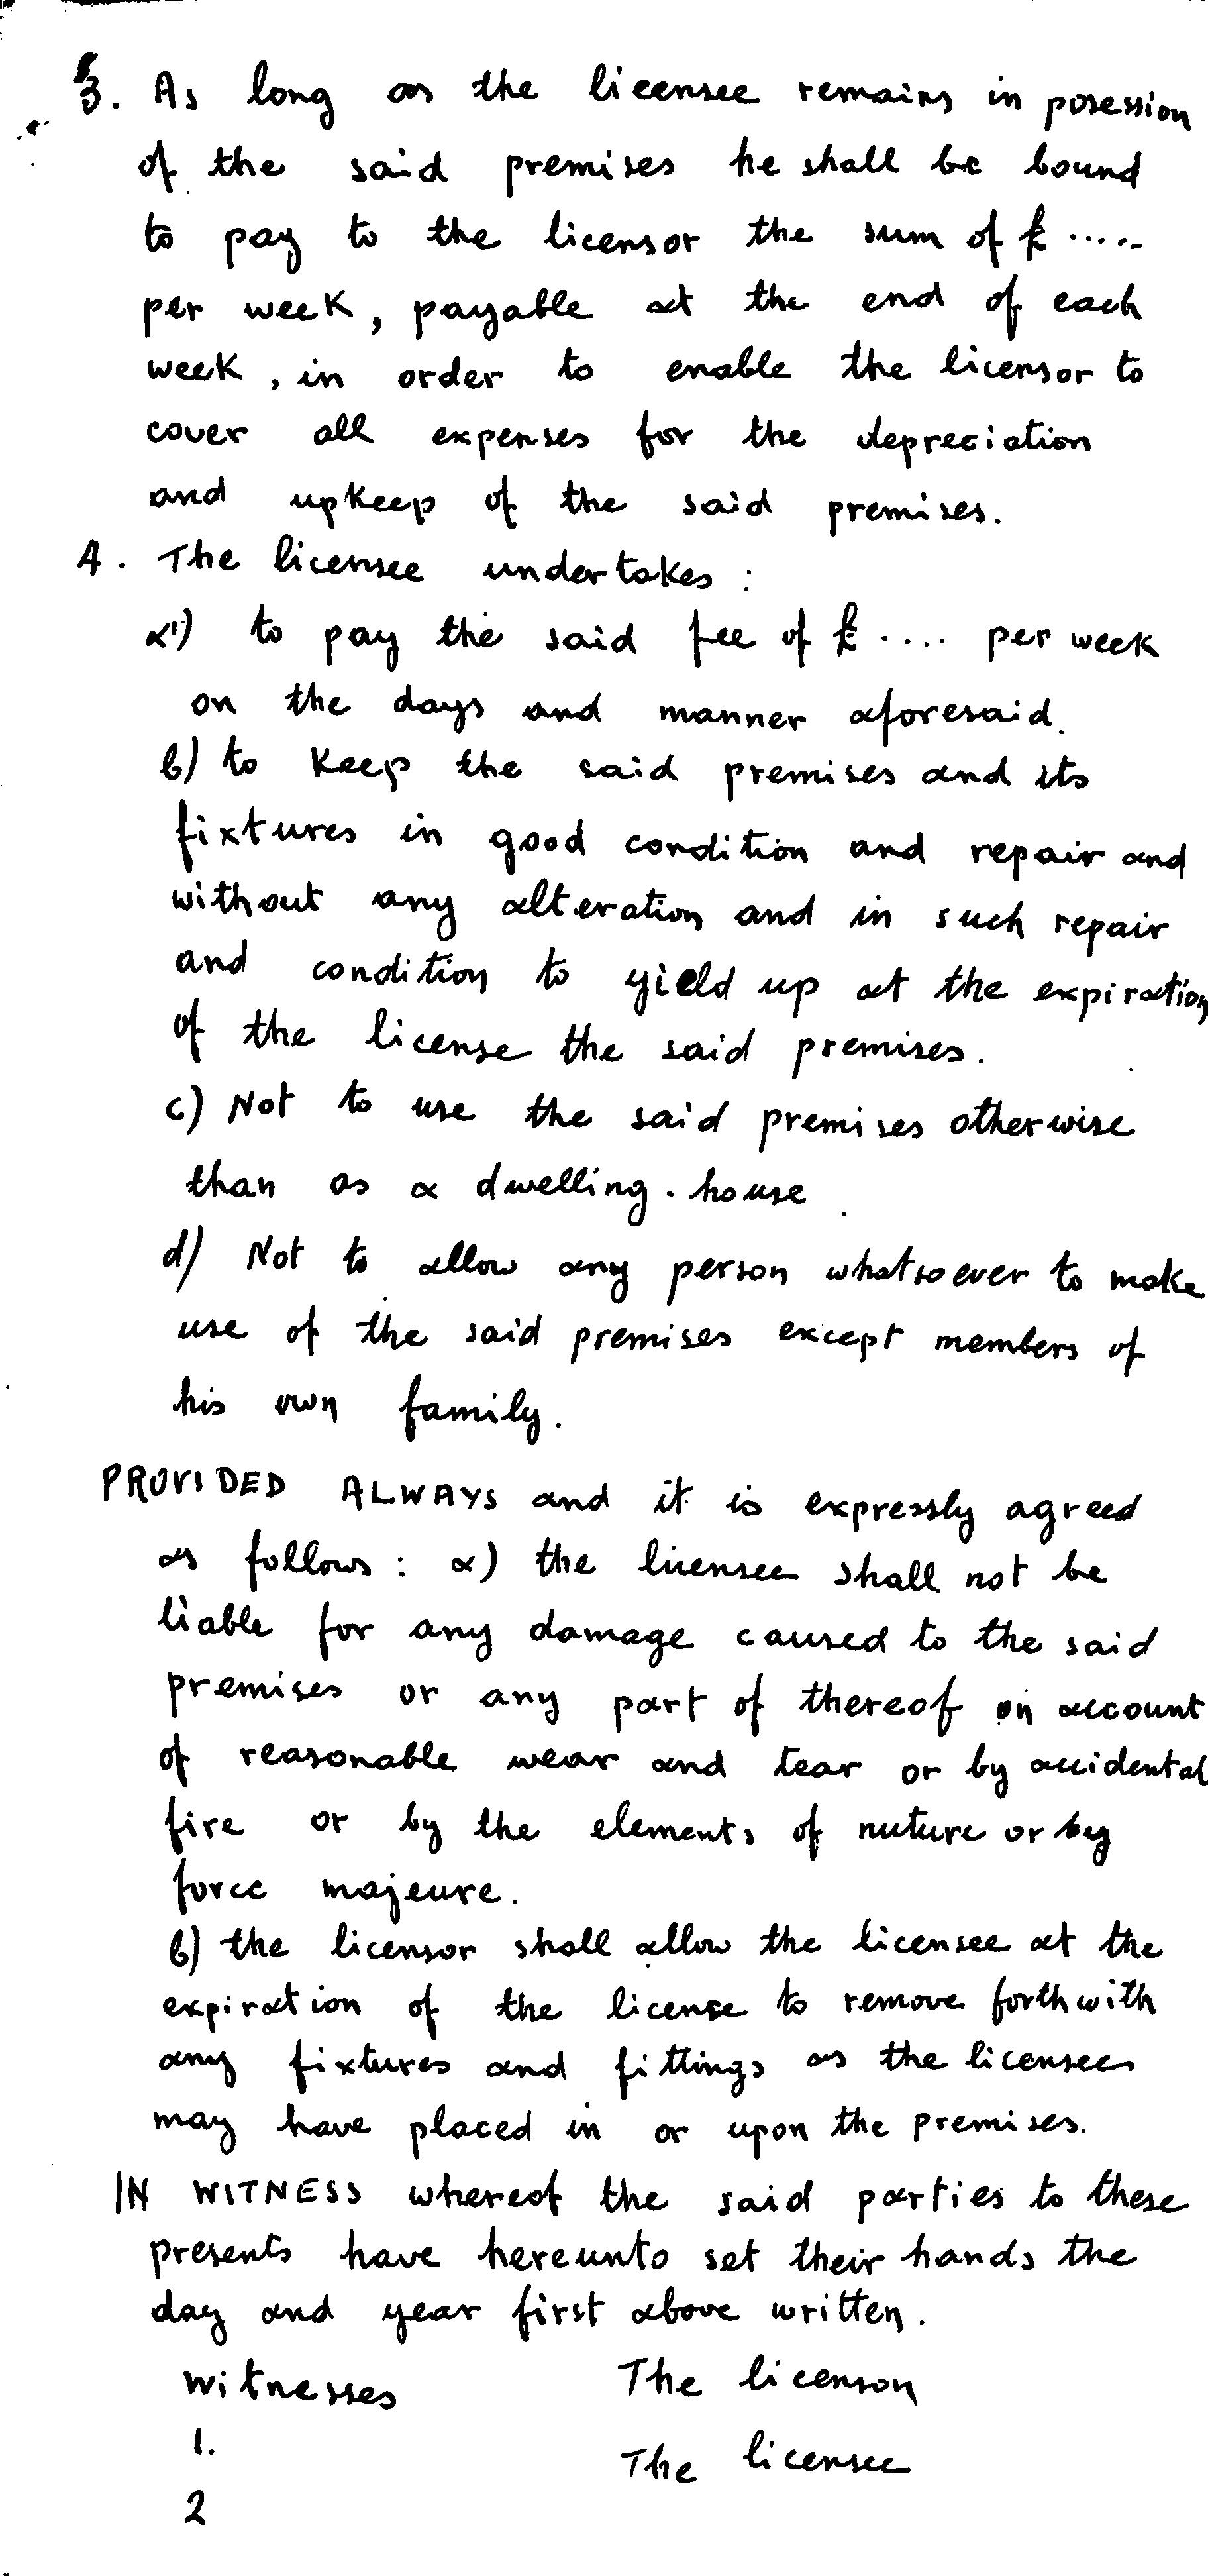 3. As long as the licensee remains in posession
of the said premises he shall be bound
to pay to the licensor the sum of £ .....
per week, payable at the end of each
week, in order to enable the licensor to
cover all expenses for the depreciation
and upkeep of the said premises.
4. The licensee undertakes :
a') to pay the said fee of £ .... per week
on the days and manner aforesaid.
b) to keep the said premises and its
fixtures in good condition and repair and
without any alteration and in such repair
and condition to yield up at the expiration
of the license the said premises.
c) Not to use the said premises otherwise
than as a dwelling-house.
d) Not to allow any person whatsoever to make
use of the said premises except members of
his own family.
PROVIDED ALWAYS and it is expressly agreed
as follows : a) the licensee shall not be
liable for any damage caused to the said
premises or any part of thereof on account
of reasonable wear and tear or by accidental
fire or by the elements of nuture or by
force majeure.
b) the licensor shall allow the licensee at the
expiration of the license to remove forthwith
any fixtures and fittings as the licensees
may have placed in or upon the premises.
IN WITNESS whereof the said parties to these
presents have hereunto set their hands the
day and year first above written.
Witnesses The licenson
1.
The licensee
2